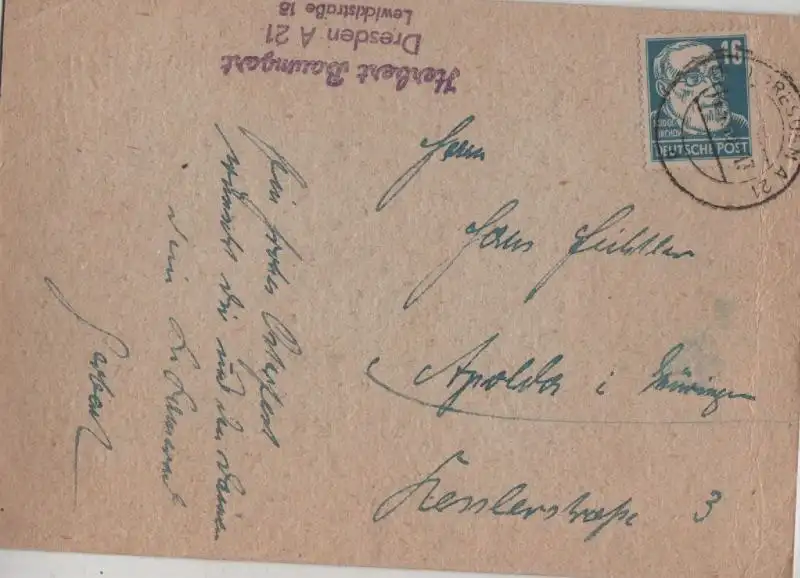 Herbert Baumgart
Dresden A 21
Lewickistraße 18
16
DEUTSCHE POST
DRESDEN A 21
Ein frohes Osterfest
wünscht Dir und den Deinen
Dein
Herbert
Herrn
Hans
Apolda i Thüringen
Kesslerstraße 3